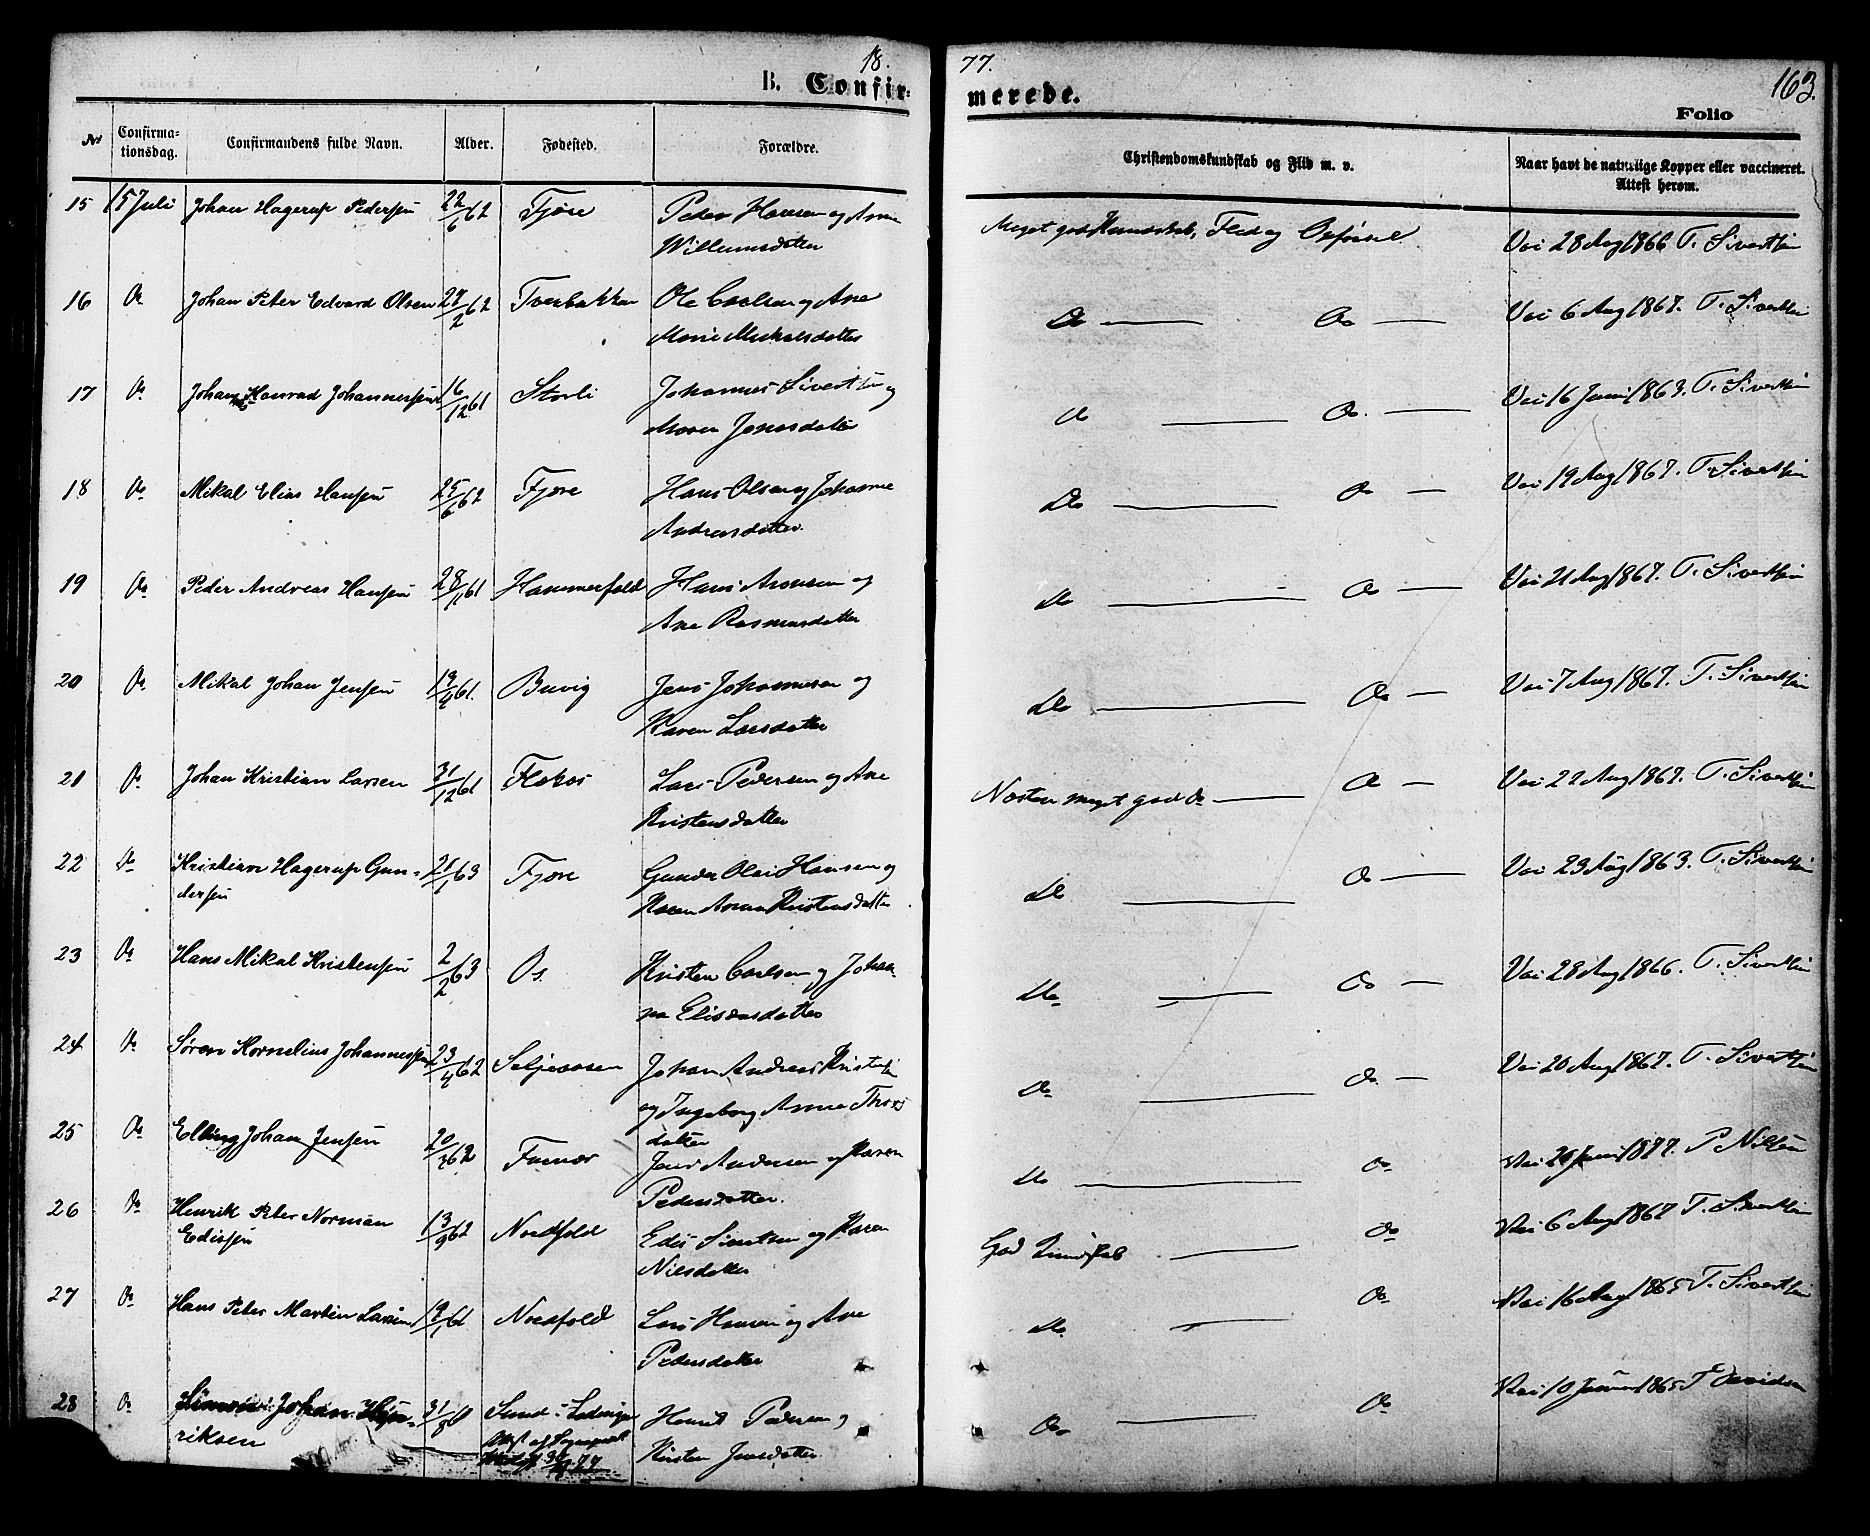 18. 77. 163.
B. Confirmerede.
Folio
No Confirmationsdag. Confirmandens fulde Navn. Alder. Fødested. Forældre. Christendomskundskab og Flid m. v. Naar havt de naturlige Kopper eller vaccineret. Attest herom.
15 15 Juli Johan Hagerup Pedersen 22/6 62 Fjøre Peder Hansen og Ane Meget god Kundskab, Flid og Opførsel Vac 28 Aug 1866 T. Sivertsen
Willumsdatter
16 Do Johan Peter Edvard Olsen 27/2 62 Tverbakken Ole Carlsen og Ane Do Do Vac 6 Aug 1867. T. Sivertsen
Marie Mikalsdatter
17 Do Johan Konrad Johannessen 16/12 61 Storli Johannes Sivertsen og Do Do Vac 16 Juni 1863. T. Sivertsen
Maren Jonasdatter
18 Do Mikal Elias Hansen 25/6 62 Fjøre Hans Olsen og Johanne Do Do Vac 19 Aug 1867. T. Sivertsen
Andreasdatter
19 Do Peder Andreas Hansen 28/11 61 Hammerfald Hans Aronsen og Do Do Vac 21 Aug 1867. T. Sivertsen
Ane Rasmusdatter
20 Do Mikal Johan Jensen 19/9 61. Buvig Jens Johannesen og Do Do Vac 7 Aug 1867. T. Sivertsen
Karen Larsdatter
21 Do Johan Kristian Larsen 31/12 61 Flekos Lars Pedersen og Ane Næsten meget god Do Do Vac 22 Aug 1867. T. Sivertsen
Kristensdatter
22 Do Kristian Hagerup Gun- 21/1 63 Fjøre Gunder Olai Hansen og Do Do Vac 23 Aug 1863. T. Sivertsen
dersen Karen Anna Kristensdatter
23 Do Hans Mikal Kristensen 2/2 63 Os Kristen Carlsen og Johan- Do Do Vac 28 Aug 1866. T. Sivertsen
na Elisæusdatter
24 Do Søren Kornelius Johannessen 23/4 62 Seljeaasen Johan Andreas Kristensen Do Do Vac 20 Aug 1867. T. Sivertsen
og Ingeborg Anna Thors
datter
25 Do Elling Johan Jensen 20/3 62 Furnæs Jens Andersen og Karen Do Do Vac 20 Juni 1877. P. Nilsen
Pedersdatter.
26 Do Henrik Peter Norman 13/9 62 Nordfold Edis Sivertsen og Karen God Kundskab Do Vac 6 Aug 1867 T. Sivertsen
Edissen Nilsdatter
27 Do Hans Peter Martin Larsen 19/1 61 Nordfold Lars Hansen og Ane Do Do Vac 16 Aug 1865 T. Sivertsen
Pedersdatter
28 Do Johan Hen- 31/8 60 Sund i Henrik Pedersen og Do Do Vac 10 Juni 1865 T. Davidsen
riksen Attest af Sognepræst Kirsten Jensdatter